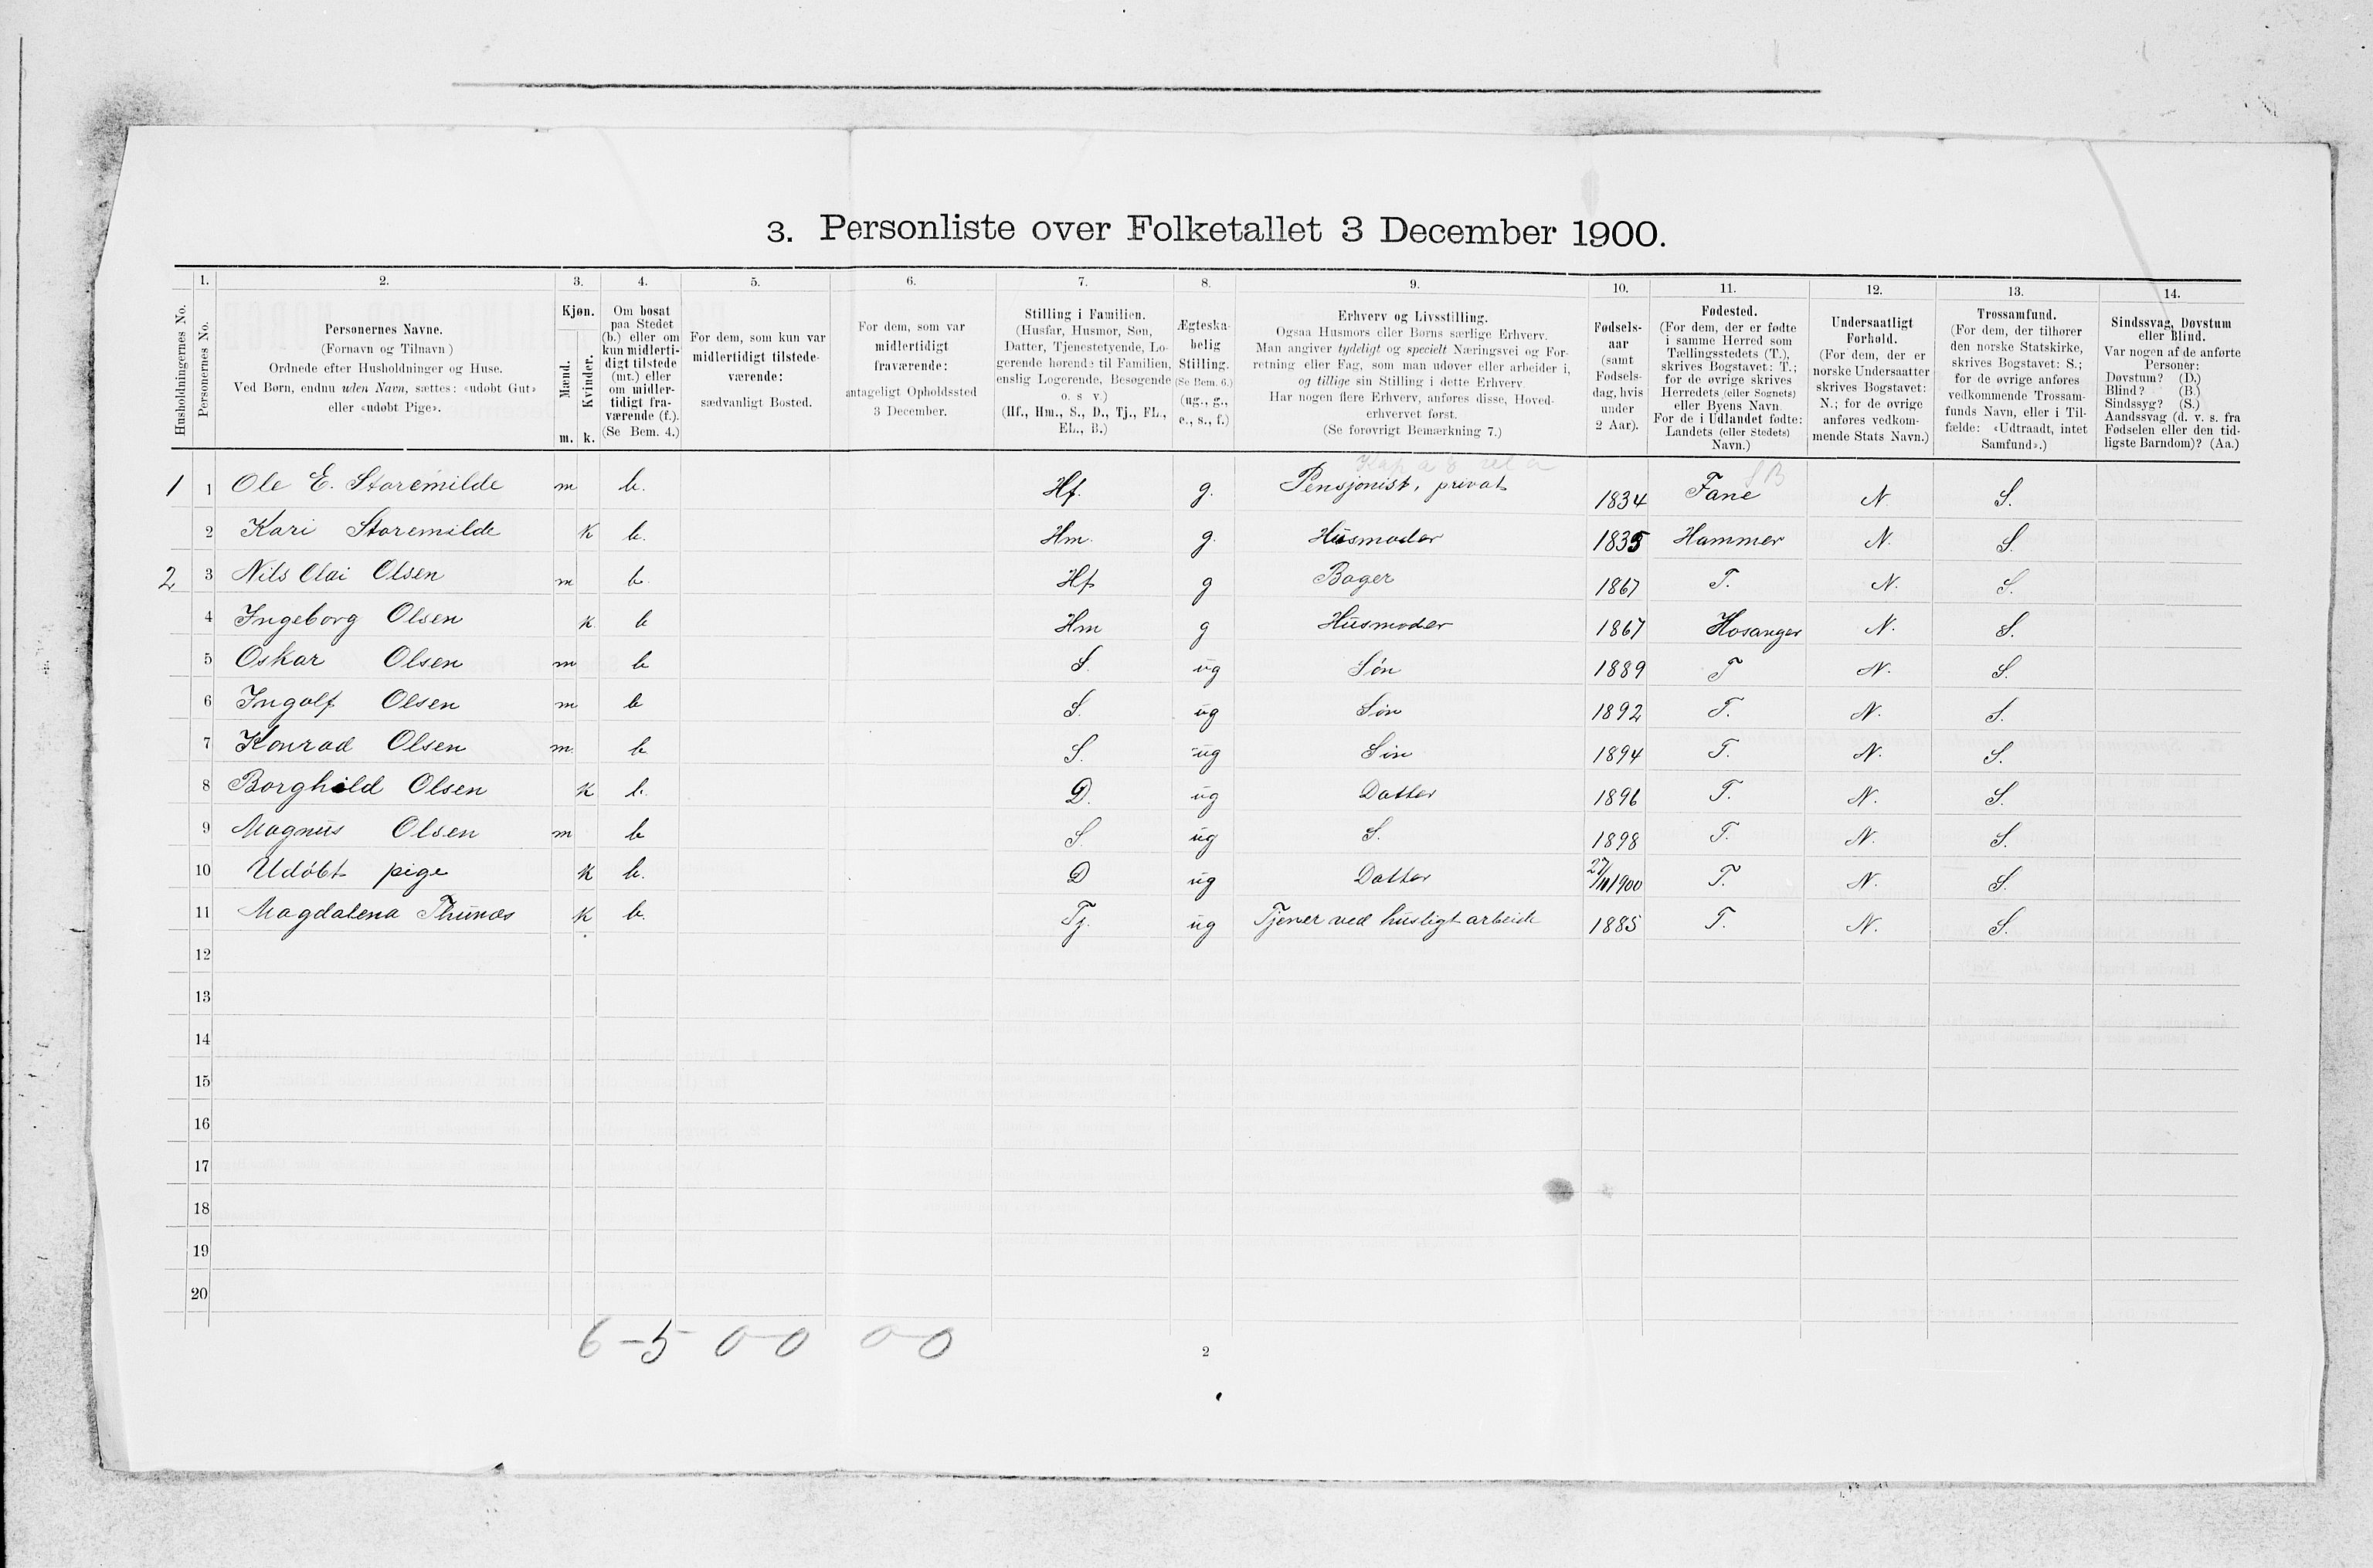 3. Personliste over Folketallet 3 December 1900.
1. 2. 3. 4. 5. 6. 7. 8. 9. 10. 11. 12. 13. 14.
Husholdningernes No.
Personernes No.
Personernes Navne.
(Fornavn og Tilnavn)
Ordnede efter Husholdninger og Huse.
Ved Børn, endnu uden Navn, sættes: «udøbt Gut»
eller «udøbt Pige».
Kjøn.
Mænd.
Kvinder.
m. k.
Om bosat
paa Stedet
(b.) eller om
kun midlerti-
digt tilstede
(mt.) eller
om midler-
tidigt fra-
værende (f.).
(Se Bem. 4.)
For dem, som kun var
midlertidigt tilstede-
værende:
sædvanligt Bosted.
For dem, som var
midlertidigt
fraværende:
antageligt Opholdssted
3 December.
Stilling i Familien.
(Husfar, Husmor, Søn,
Datter, Tjenestetyende, Lo-
gerende hørende til Familien,
enslig Logerende, Besøgende
o. s. v.)
(Hf., Hm., S., D., Tj., FL.,
EL., B.)
Ægteska-
belig
Stilling.
(Se Bem. 6.)
(ug., g.,
e., s., f.)
Erhverv og Livsstilling.
Ogsaa Husmors eller Børns særlige Erhverv.
Man angiver tydeligt og specielt Næringsvei og For-
retning eller Fag, som man udøver eller arbeider i,
og tillige sin Stilling i dette Erhverv.
Har nogen flere Erhverv, anføres disse, Hoved-
erhvervet først.
(Se forøvrigt Bemærkning 7.)
Fødsels-
aar
(samt
Fødsels-
dag, hvis
under
2 Aar).
Fødested.
(For dem, der er fødte
i samme Herred som
Tællingsstedets (T.),
skrives Bogstavet: T.;
for de øvrige skrives
Herredets (eller Sognets)
eller Byens Navn.
For de i Udlandet fødte:
Landets (eller Stedets)
Navn.)
Undersaatligt
Forhold.
(For dem, der er
norske Undersaatter
skrives Bogstavet:
N.; for de øvrige
anføres vedkom-
mende Stats Navn.)
Trossamfund.
(For dem, der tilhører
den norske Statskirke,
skrives Bogstavet: S.;
for de øvrige anføres
vedkommende Trossam-
funds Navn, eller i Til-
fælde: «Udtraadt, intet
Samfund».)
Sindssvag, Døvstum
eller Blind.
Var nogen af de anførte
Personer:
Døvstum? (D.)
Blind? (B.)
Sindssyg? (S.)
Aandssvag (d. v. s. fra
Fødselen eller den tid-
ligste Barndom)? (Aa.)
1 1 Ole E. Storemilde m b. Hf. g. Pensjonist, privat 1834 Fane N S.
2 Kari Storemilde k b. Hm. g. Husmoder 1835 Hammer N. S
2 3 Nils Olai Olsen m b. Hf g Bager 1867 T. N. S.
4 Ingeborg Olsen k b Hm g Husmoder 1867 Hosanger N. S.
5 Oskar Olsen m b S. ug Søn 1889 T N. S.
6 Ingolf Olsen m b S. ug Søn 1892 T. N. S.
7 Konrad Olsen m. b S. ug Søn 1894 T. N. S.
8 Borghild Olsen k b. D. ug Datter 1896 T. N. S.
9 Magnus Olsen m b S ug S. 1898 T. N. S.
10 Udøbt pige k b. D ug Datter 27/11 1900 T. N. S.
11 Magdalena Thunæs k b. Tj. ug Tjener ved husligt arbeide 1885 T. N. S.
12
13
14
15
16
17
18
19
20
6-5 0-0 0-0
2